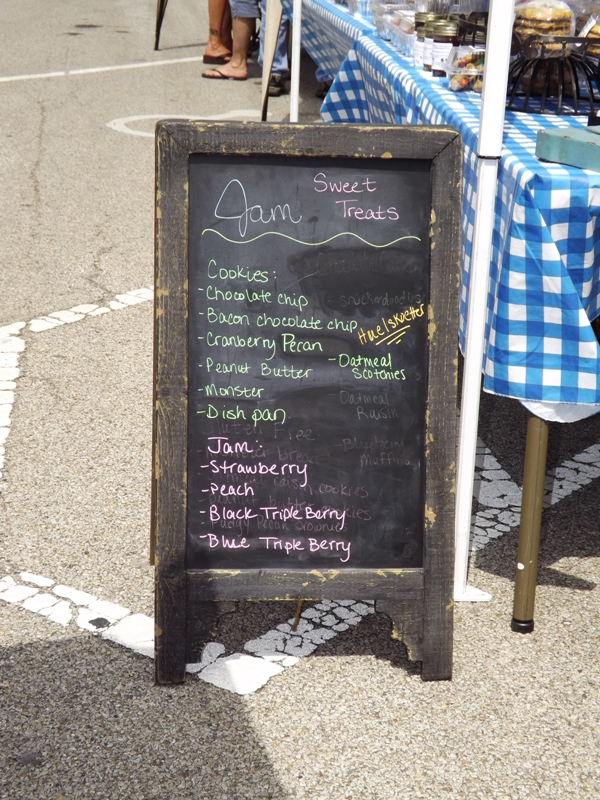 Jam
Sweet
Treats
Cookies:
- Chocolate chip
- Bacon chocolate chip
Huelskoetter
- Cranberry Pecan
- Peanut Butter
- Monster
- Dish pan
- Snickerdoodles
- Oatmeal
Scotchies
Oatmeal
Raisin
Muffins
Jam:
- Strawberry
- Peach
- Black Triple Berry
- Blue Triple Berry
cookies